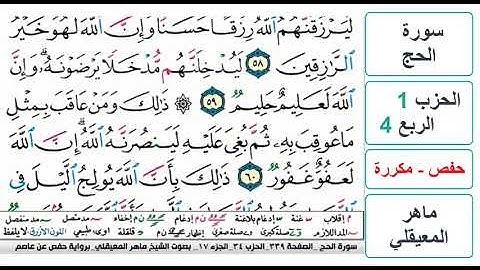 لَيَرْزُقَنَّهُمُ اللَّهُ رِزْقًا حَسَنًا وَإِنَّ اللَّهَ لَهُوَ خَيْرُ
الرَّازِقِينَ ٥٨ لَيُدْخِلَنَّهُم مُّدْخَلًا يَرْضَوْنَهُۥ وَإِنَّ
اللَّهَ لَعَلِيمٌ حَلِيمٌ ٥٩ ۞ ذَٰلِكَ وَمَنْ عَاقَبَ بِمِثْلِ
مَا عُوقِبَ بِهِۦ ثُمَّ بُغِيَ عَلَيْهِ لَيَنصُرَنَّهُ اللَّهُ إِنَّ اللَّهَ
لَعَفُوٌّ غَفُورٌ ٦٠ ذَٰلِكَ بِأَنَّ اللَّهَ يُولِجُ اللَّيْلَ فِي
سورة
الحج
الحزب 1
الربع 4
حفص - مكررة
ماهر
المعيقلي
م إقلاب غنة إدغام بلاغنة إدغام م إخفاء مد متصل مد منفصل
المد اللازم صلة كبرى صلة صغرى لا يلفظ
سورة الحج _ الصفحة ٣٣٩_ الحزب ٣٤_ الجزء ١٧_ بصوت الشيخ ماهر المعيقلي_ برواية حفص عن عاصم